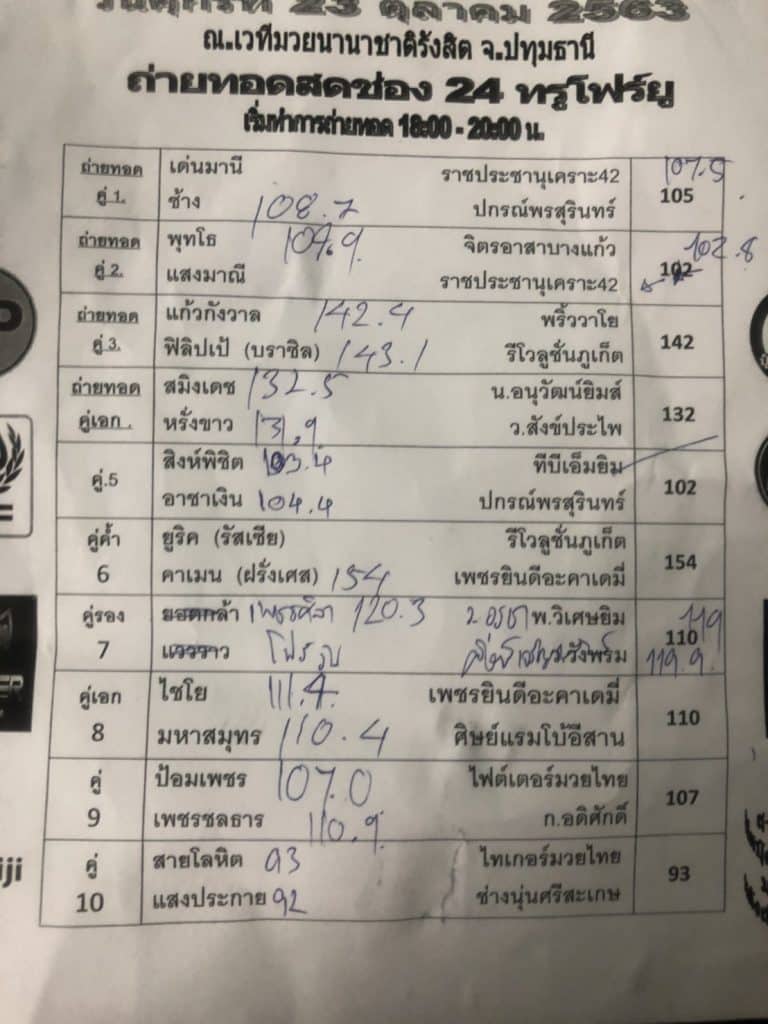 วันศุกร์ที่ 23 ตุลาคม 2563
ณ.เวทีมวยนานาชาติรังสิต จ.ปทุมธานี
ถ่ายทอดสดช่อง 24 ทรูโฟร์ยู
เริ่มทำการถ่ายทอด 18:00 - 20:00 น.
ถ่ายทอด เด่นมานี ราชประชานุเคราะ42 107.5
คู่ 1. ช้าง 108.7 ปกรณ์พรสุรินทร์ 105
ถ่ายทอด พุทโธ จิตรอาสาบางแก้ว 102.8
คู่ 2. แสงมาณี ราชประชานุเคราะ42 102
ถ่ายทอด แก้วกังวาล 142.4 พริ้ววาโย
คู่ 3. ฟิลิปเป้ (บราซิล) 143.1 รีโวลูชั่นภูเก็ต 142
ถ่ายทอด สมิงเดช 132.5 น.อนุวัฒน์ยิมส์
คู่เอก . หรั่งขาว 131.9 ว.สังข์ประไพ 132
คู่.5 สิงห์พิชิต 103.4 ทีบีเอ็มยิม
อาชาเงิน 104.4 ปกรณ์พรสุรินทร์ 102
คู่ค้ำ ยูริค (รัสเซีย) รีโวลูชั่นภูเก็ต
6 คาเมน (ฝรั่งเศส) 154 เพชรยินดีอะคาเดมี่ 154
คู่รอง ยอดกล้า 120.3 พ.วิเศษยิม 119
7 110 119.9
คู่เอก ไชโย 111.4 เพชรยินดีอะคาเดมี่
8 มหาสมุทร 110.4 ศิษย์แรมโบ้อีสาน 110
คู่ ป้อมเพชร 107.0 ไฟต์เตอร์มวยไทย
9 เพชรชลธาร 110.9 ก.อดิศักดิ์ 107
คู่ สายโลหิต 93 ไทเกอร์มวยไทย
10 แสงประกาย 92 ช่างนุ่นศรีสะเกษ 93